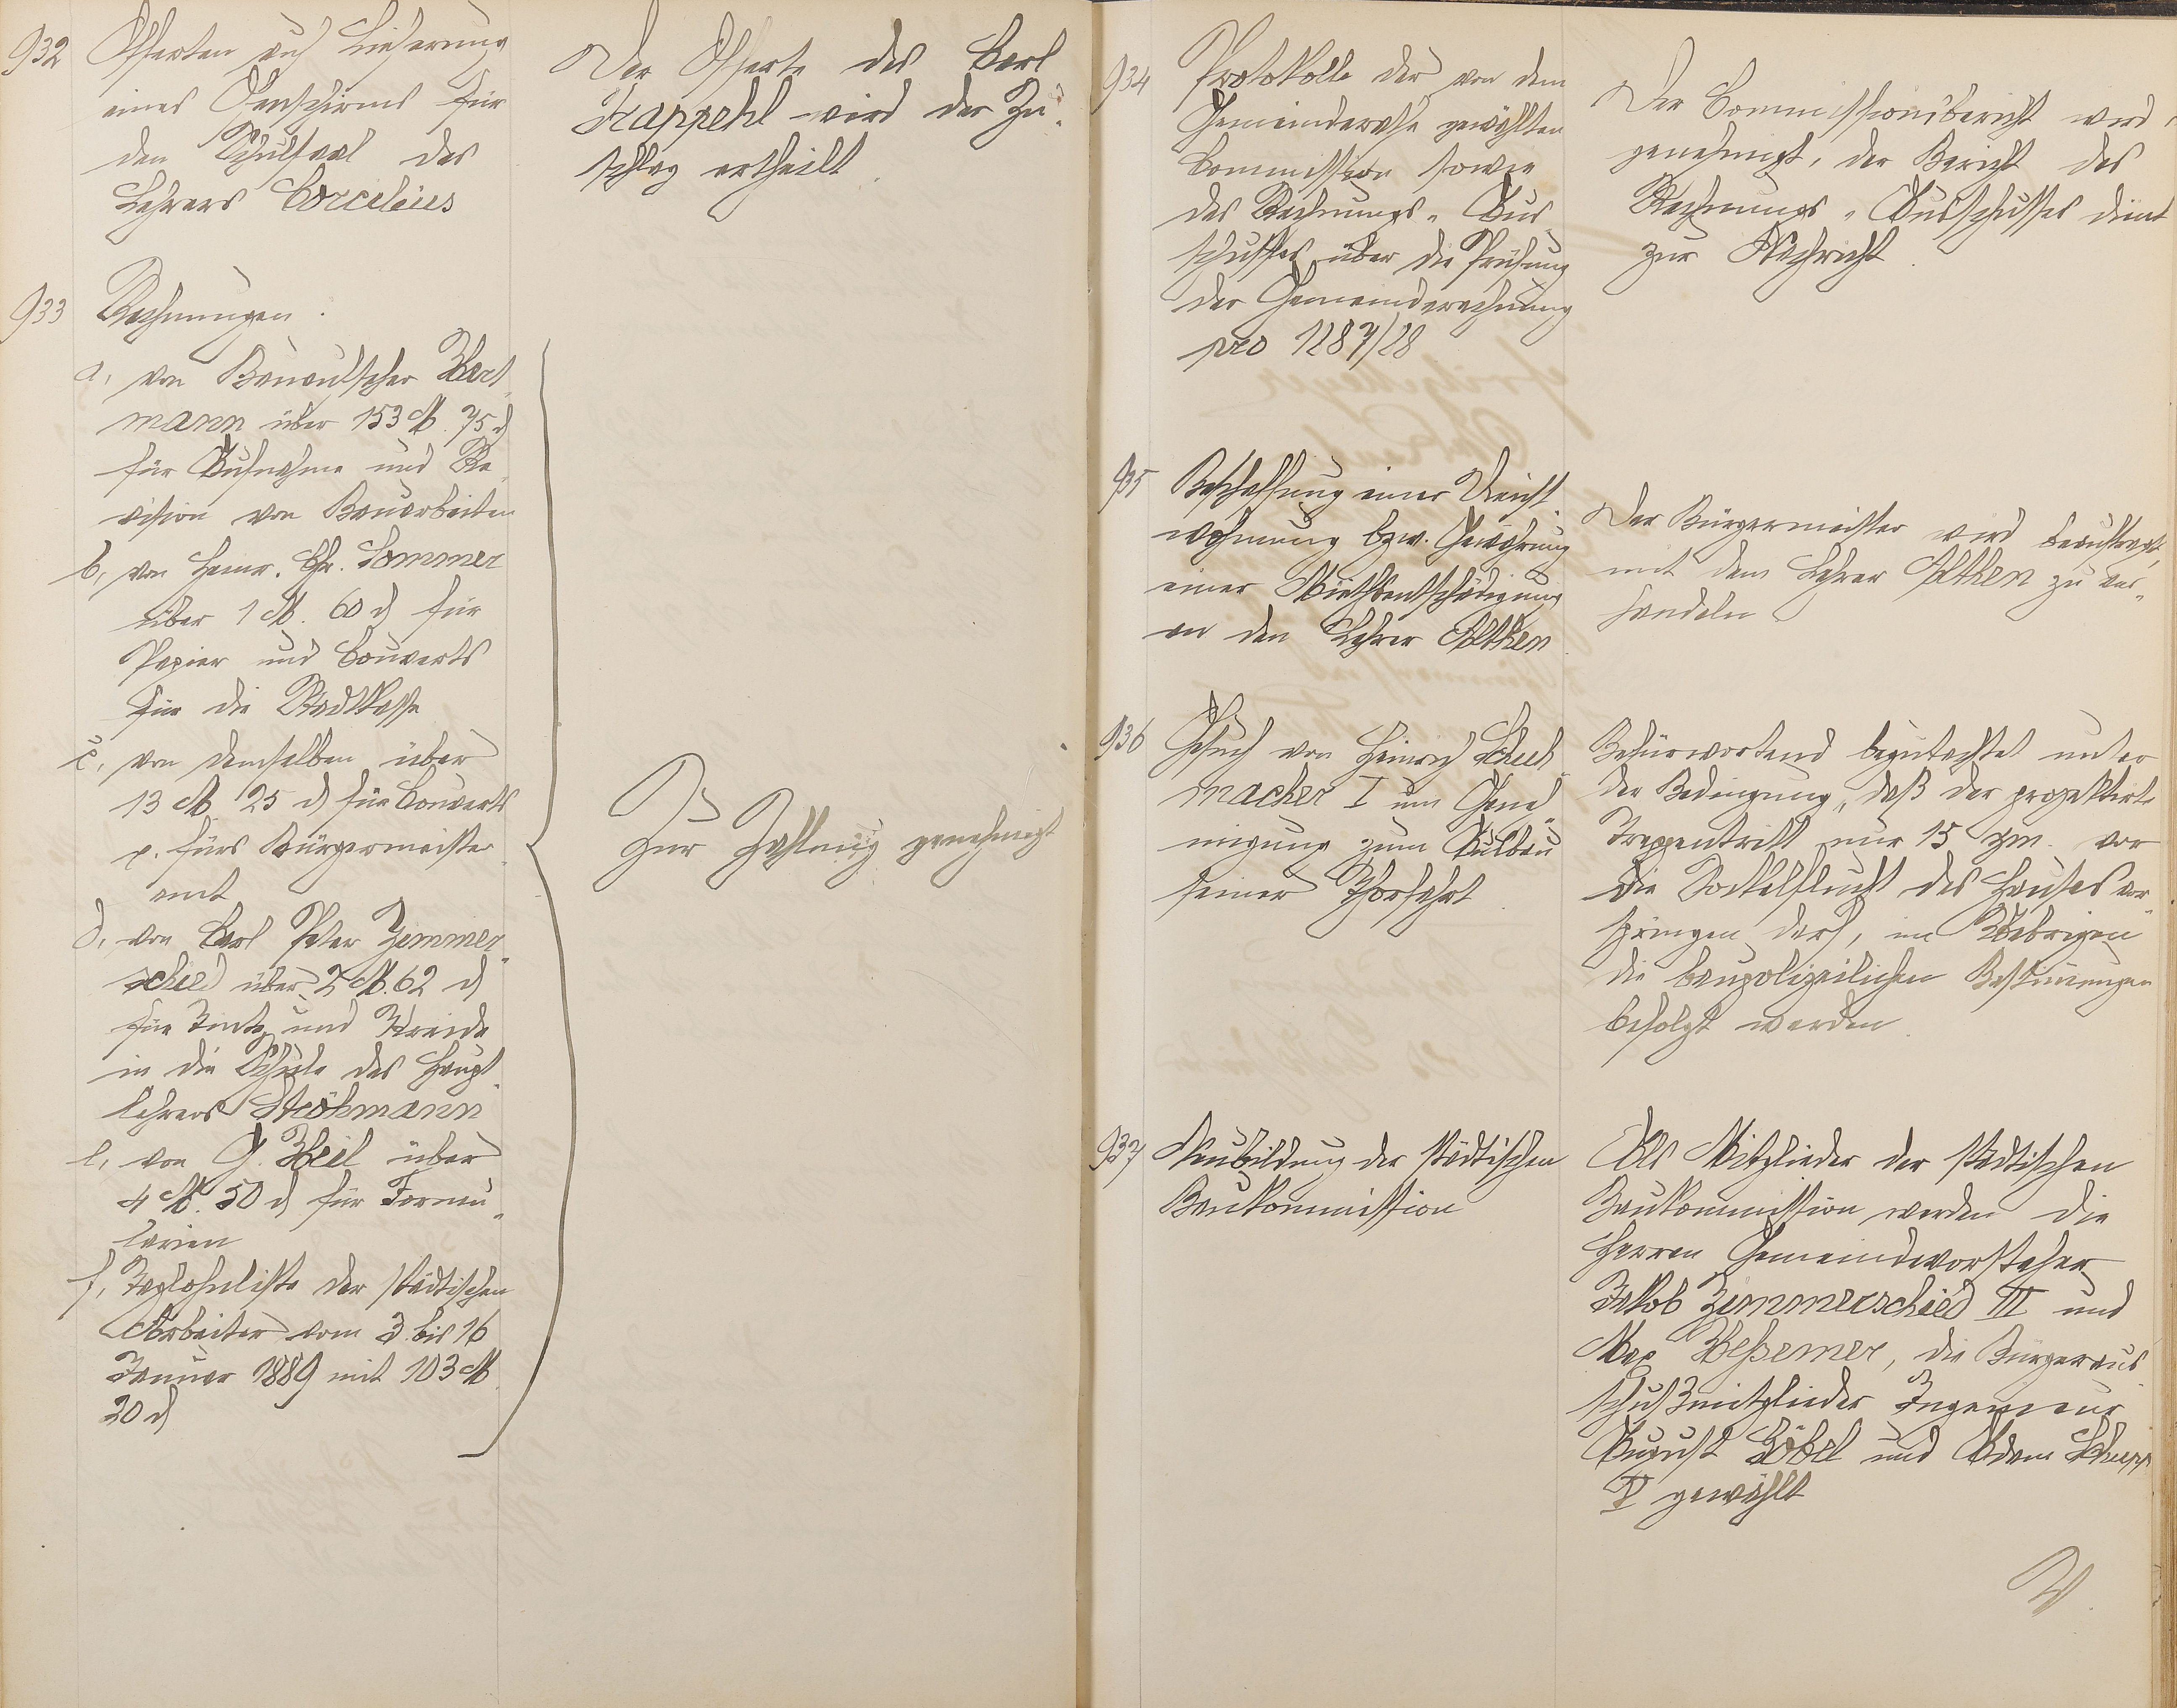 932 Offerten auf Lieferung
eines Ofenschirms für
den Schulsaal des
Lehrers Corcilius
Der Offerte des Carl
Kappehl wird der Zu-
schlag ertheilt.
933 Rechnungen:
a, von Bauaufseher Hart-
mann über 153 M. 75 d
für Aufnahme und Re-
vision von Bauarbeiten
b, von Heinr. Chr. Sommer
über 1 M. 60 d für
Papier und Couverts
für die Stadtkasse
c, von demselben über
13 M. 25 d für Couverts
p. fürs Bürgermeister-
amt
d, von Carl Peter Zimmer-
schied über 2 M. 62 d
für Tinte und Kreide
in die Schule des Haupt-
lehrers Ströhmann
e, von G. Heil über
4 M. 50 d für Formu-
larien
f, Taglohnliste der städtischen
Arbeiter vom 3. bis 16
Januar 1889 mit 103 M.
20 d
Zur Zahlung genehmigt
934 Protokolle der von dem
Gemeinderathe gewählten
Commission sowie
des Rechnungs-Aus-
schusses über die Prüfung
der Gemeinderechnung
pro 1887/88
Der Commissionsbericht wird
genehmigt, der Bericht des
Rechnungs-Ausschusses dient
zur Nachricht.
935 Beschaffung einer Dienst-
wohnung bzw. Gewährung
einer Miethsentschädigung
an den Lehrer Althen
Der Bürgermeister wird beauftragt,
mit dem Lehrer Althen zu ver-
handeln
936 Gesuch von Heinrich Schuh-
macher I um Geneh-
migung zum Aufbau
seiner Thorfahrt.
Befürwortend begutachtet unter
der Bedingung, daß der projektirte
Treppentritt nur 15 zm. vor
die Sockelflucht des Hauses vor-
springen darf, im Uebrigen
die baupolizeilichen Bestimmungen
befolgt werden.
937 Neubildung der städtischen
Baukommission
Als Mitglieder der städtischen
Baukommission werden die
Herren Gemeindevorsteher
Jakob Zimmerschied III und
Max Hessemer, die Bürgeraus-
schußmitglieder Ingenieur
August Göbel und Adam Schupp
V gewählt